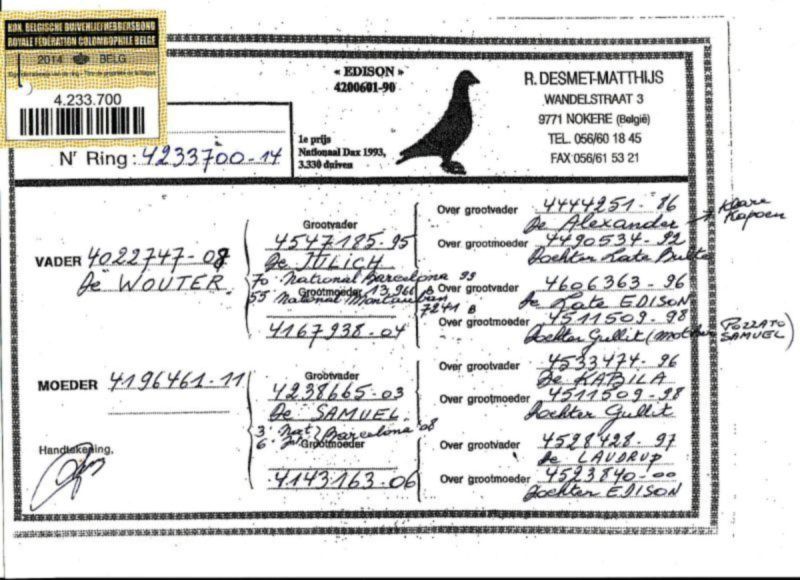 KON. BELGISCHE DUIVENLIEFHEBBERSBOND
ROYALE FÉDÉRATION COLOMBOPHILE BELGE
2014 BELG
4.233.700
N' Ring: 4233700-14
« EDISON »
4200601-90
1e prijs
Nationaal Dax 1993,
3.330 duiven
R. DESMET-MATTHIJS
WANDELSTRAAT 3
9771 NOKERE (België)
TEL. 056/60 18 45
FAX 056/61 53 21
VADER 4022747-08
De WOUTER
Grootvader
4547185-95
De JULICH
70. National Barcelona 99
13,966 B
Grootmoeder
55 National Montauban
7241 B
4167938-04
Over grootvader 4444251-86
De Alexander → Klare Kapoen
Over grootmoeder 4490534-92
Dochter Late Bulta
Over grootvader 4606363-96
De Late EDISON
Over grootmoeder 4511509-98
Dochter Gullit (mother POZZATO SAMUEL)
MOEDER 4196461-11
Grootvader
4238665-03
De SAMUEL
3. Nat Barcelona 08
Grootmoeder
4143163-06
Over grootvader 4533474-96
De KABILA
Over grootmoeder 4511509-98
Dochter Gullit
Over grootvader 4528428-97
De LAUDRUP
Over grootmoeder 4523840-00
Dochter EDISON
Handtekening,